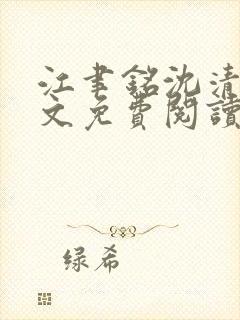 江聿銘沈清
文免費閱讀
绿希